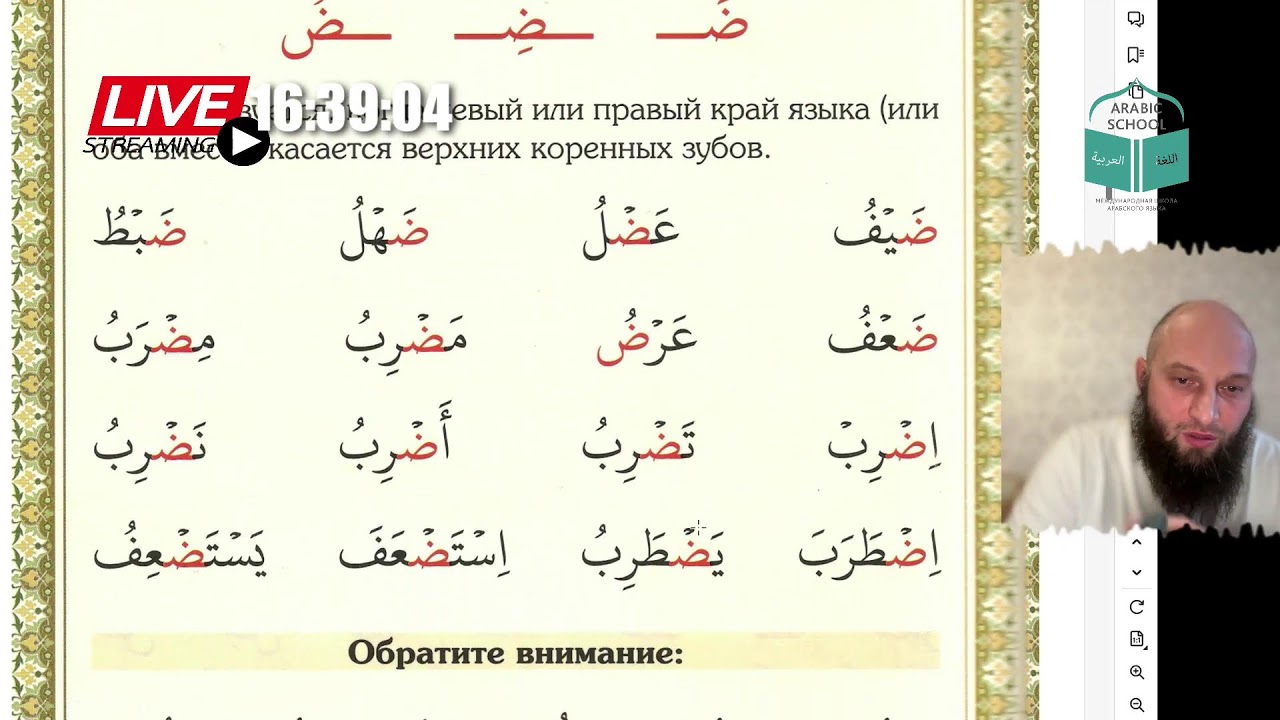 ضَـ ـضِـ ـضُ
LIVE
STREAMING
16:39:04
левый или правый край языка (или
касается верхних коренных зубов.
ضَيْفُ عَضْلُ ضَهْلُ ضَبْطُ
ضَعْفُ عَرْضُ مَضْرِبُ مِضْرَبُ
اِضْرِبْ تَضْرِبُ أَضْرِبُ نَضْرِبُ
اِضْطَرَبَ يَضْطَرِبُ اِسْتَضْعَفَ يَسْتَضْعِفُ
Обратите внимание:
ARABIC
SCHOOL
العربية اللغة
МЕЖДУНАРОДНАЯ ШКОЛА
АРАБСКОГО ЯЗЫКА
1:1